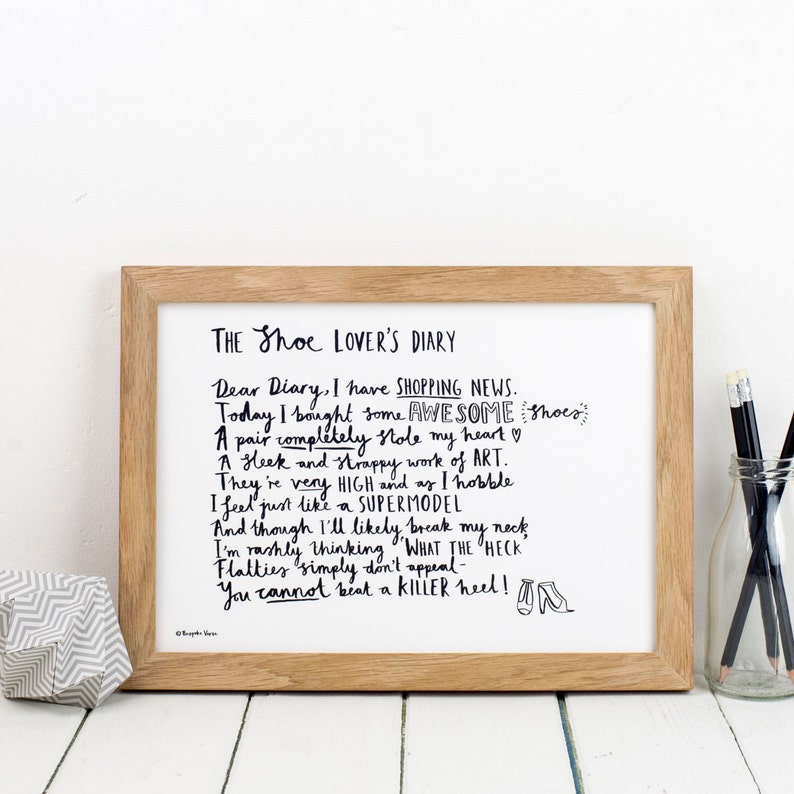 THE Shoe LOVER'S DIARY
Dear Diary, I have SHOPPING NEWS.
Today I bought some AWESOME shoes
A pair completely stole my heart ♡
A sleek and strappy work of ART.
They're very HIGH and as I hobble
I feel just like a SUPERMODEL
And though I'll likely break my neck
I'm rashly thinking 'WHAT THE HECK'
Flatties simply don't appeal-
You cannot beat a KILLER heel!
© Bespoke Verse